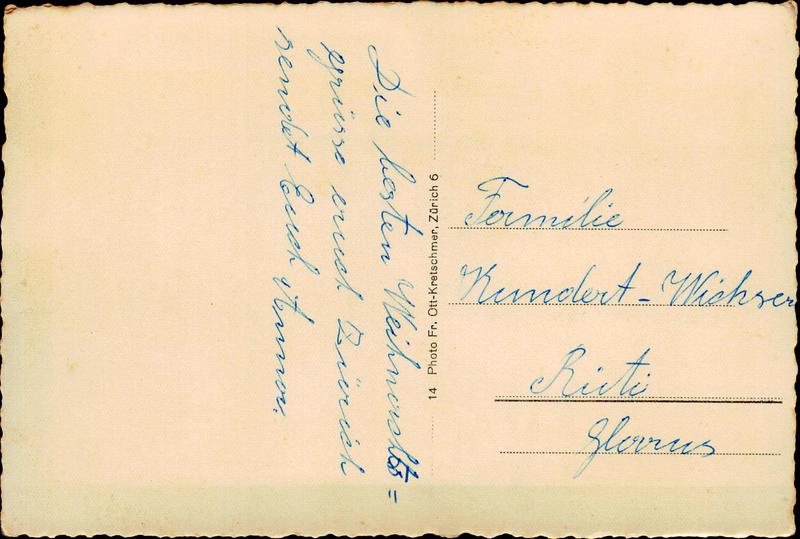 Die besten Weihnachts=
grüsse aus Zürich
sendet Euch Anna.
14 Photo Fr. Ott-Kretschmer, Zürich 6
Familie
Kundert-Wichser
Rüti
Glarus